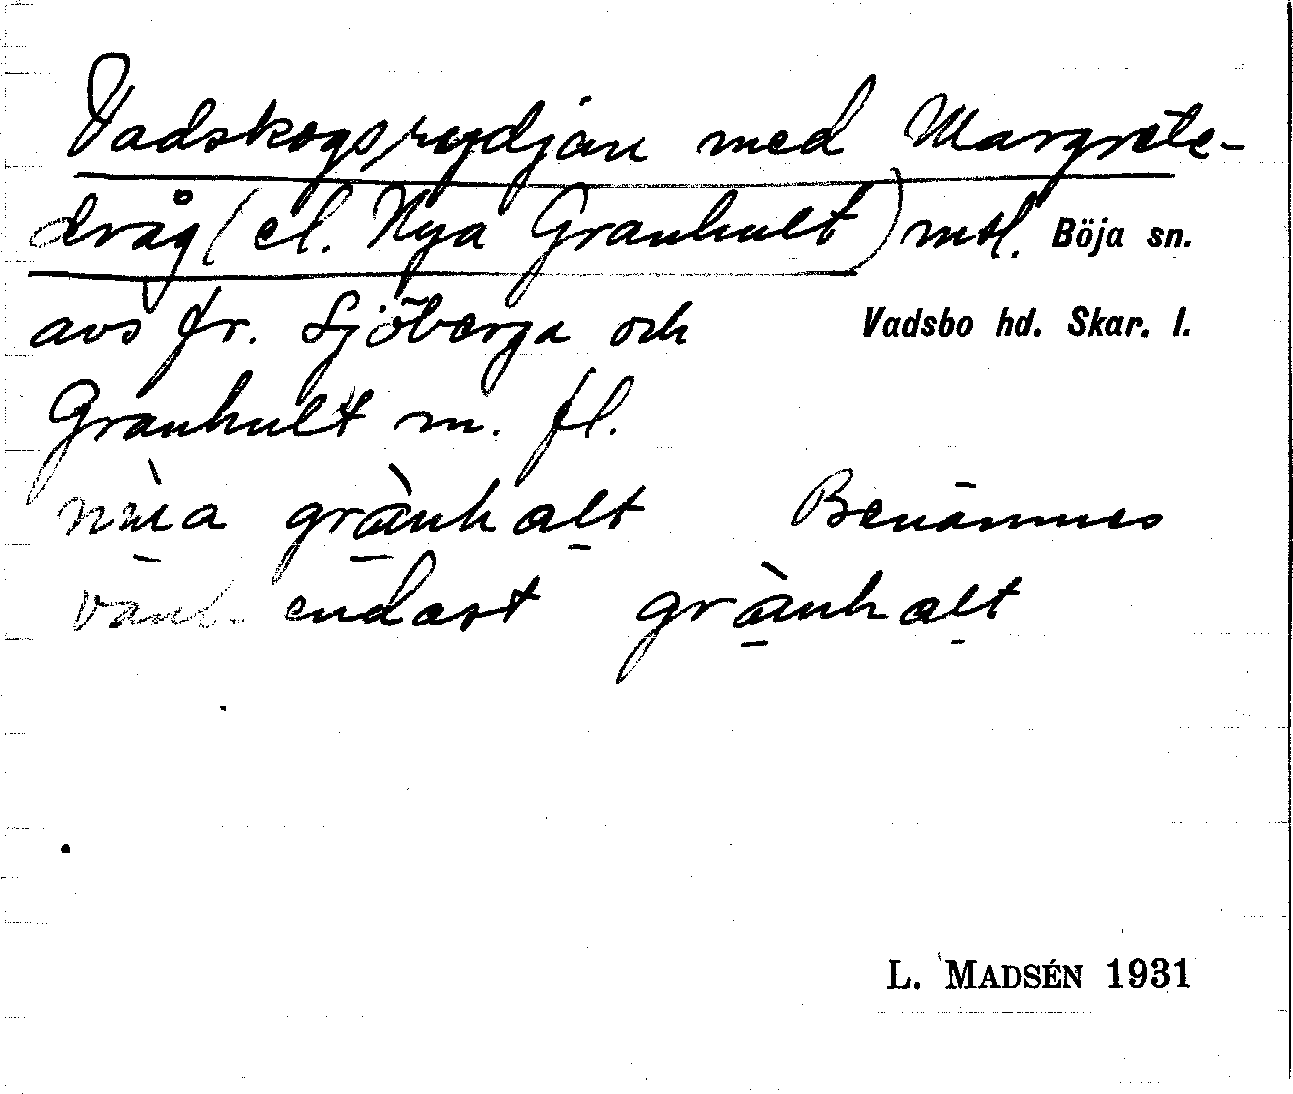 Vadskogsrydjan med Margrete-
dråg (el. Nya Granhult) mtl. Böja sn.
avs fr. Sjöberga och Vadsbo hd. Skar. l.
Granhult m. fl.
grànhalt Benämnes
vanl. endast grànhalt
L. MADSÉN 1931